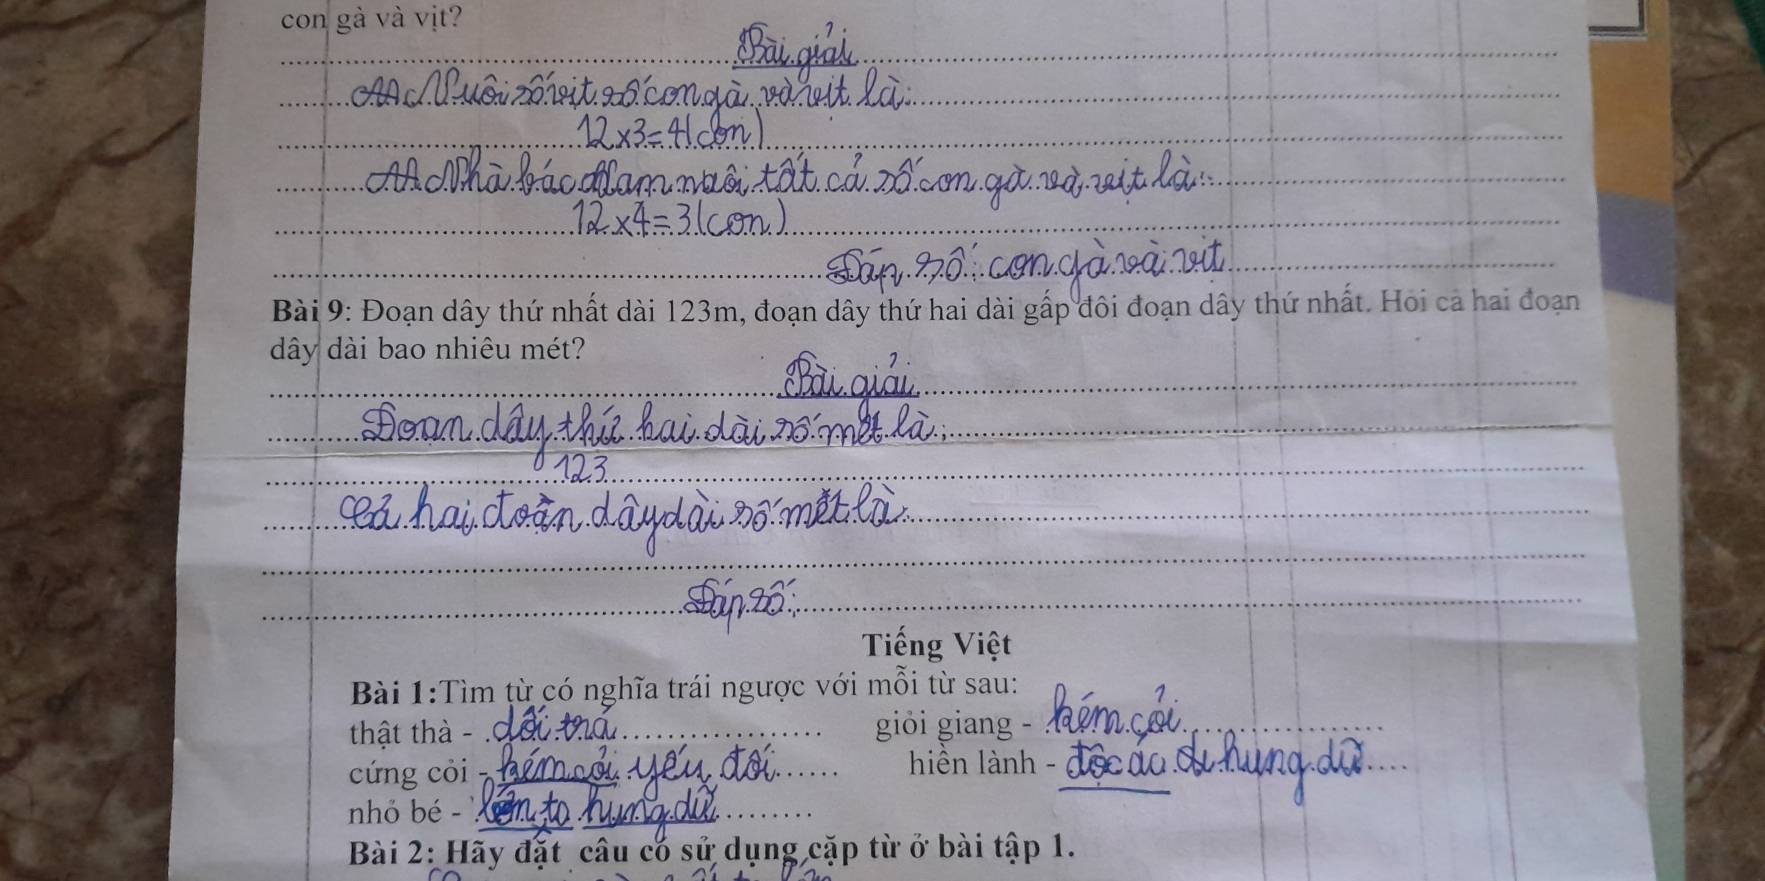 con gà và vịt?
Bài giải
Nuôi số vịt số con gà và vịt là:
12x3=4(con)
Nhà bác Nam nuôi tất cả số con gà và vịt là:
12x4=3(con)
Đáp số: con gà và vịt
Bài 9: Đoạn dây thứ nhất dài 123m, đoạn dây thứ hai dài gấp đôi đoạn dây thứ nhất. Hỏi cả hai đoạn
dây dài bao nhiêu mét?
Bài giải
Đoạn dây thứ hai dài số mét là:
123
Cả hai đoạn dây dài số mét là:
Đáp số:
Tiếng Việt
Bài 1:Tìm từ có nghĩa trái ngược với mỗi từ sau:
thật thà - dối trá giỏi giang - kém cỏi
cứng cỏi - kém cỏi yếu đối hiền lành - độc ác hung dữ
nhỏ bé - lớn to hung dữ
Bài 2: Hãy đặt câu có sử dụng cặp từ ở bài tập 1.